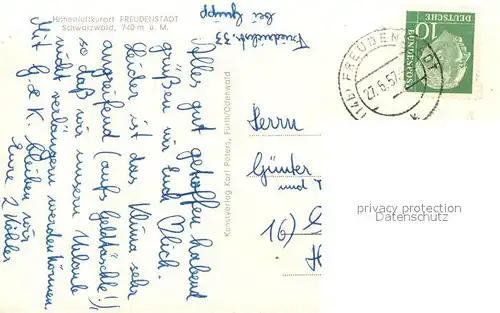 Höhenluftkurort FREUDENSTADT
Schwarzwald, 740 m ü. M.
bei Gumpp
Friedrichstr. 33
Alles gut getroffen habend
grüßen wir Euch Ihrlich.
Leider ist das Klima sehr
angreifend (aufs Geldtäschle!),
so daß wir unsern Urlaub
nicht verlängern werden können.
Mit G & K. bleiben wir
Eure 2 Köhler
Kunstverlag Karl Peters, Fürth/Odenwald
Herrn
Günter
und
16)
DEUTSCHE
BUNDESPOST
10
(14b) FREUDENSTADT
27.6.57
privacy protection
Datenschutz